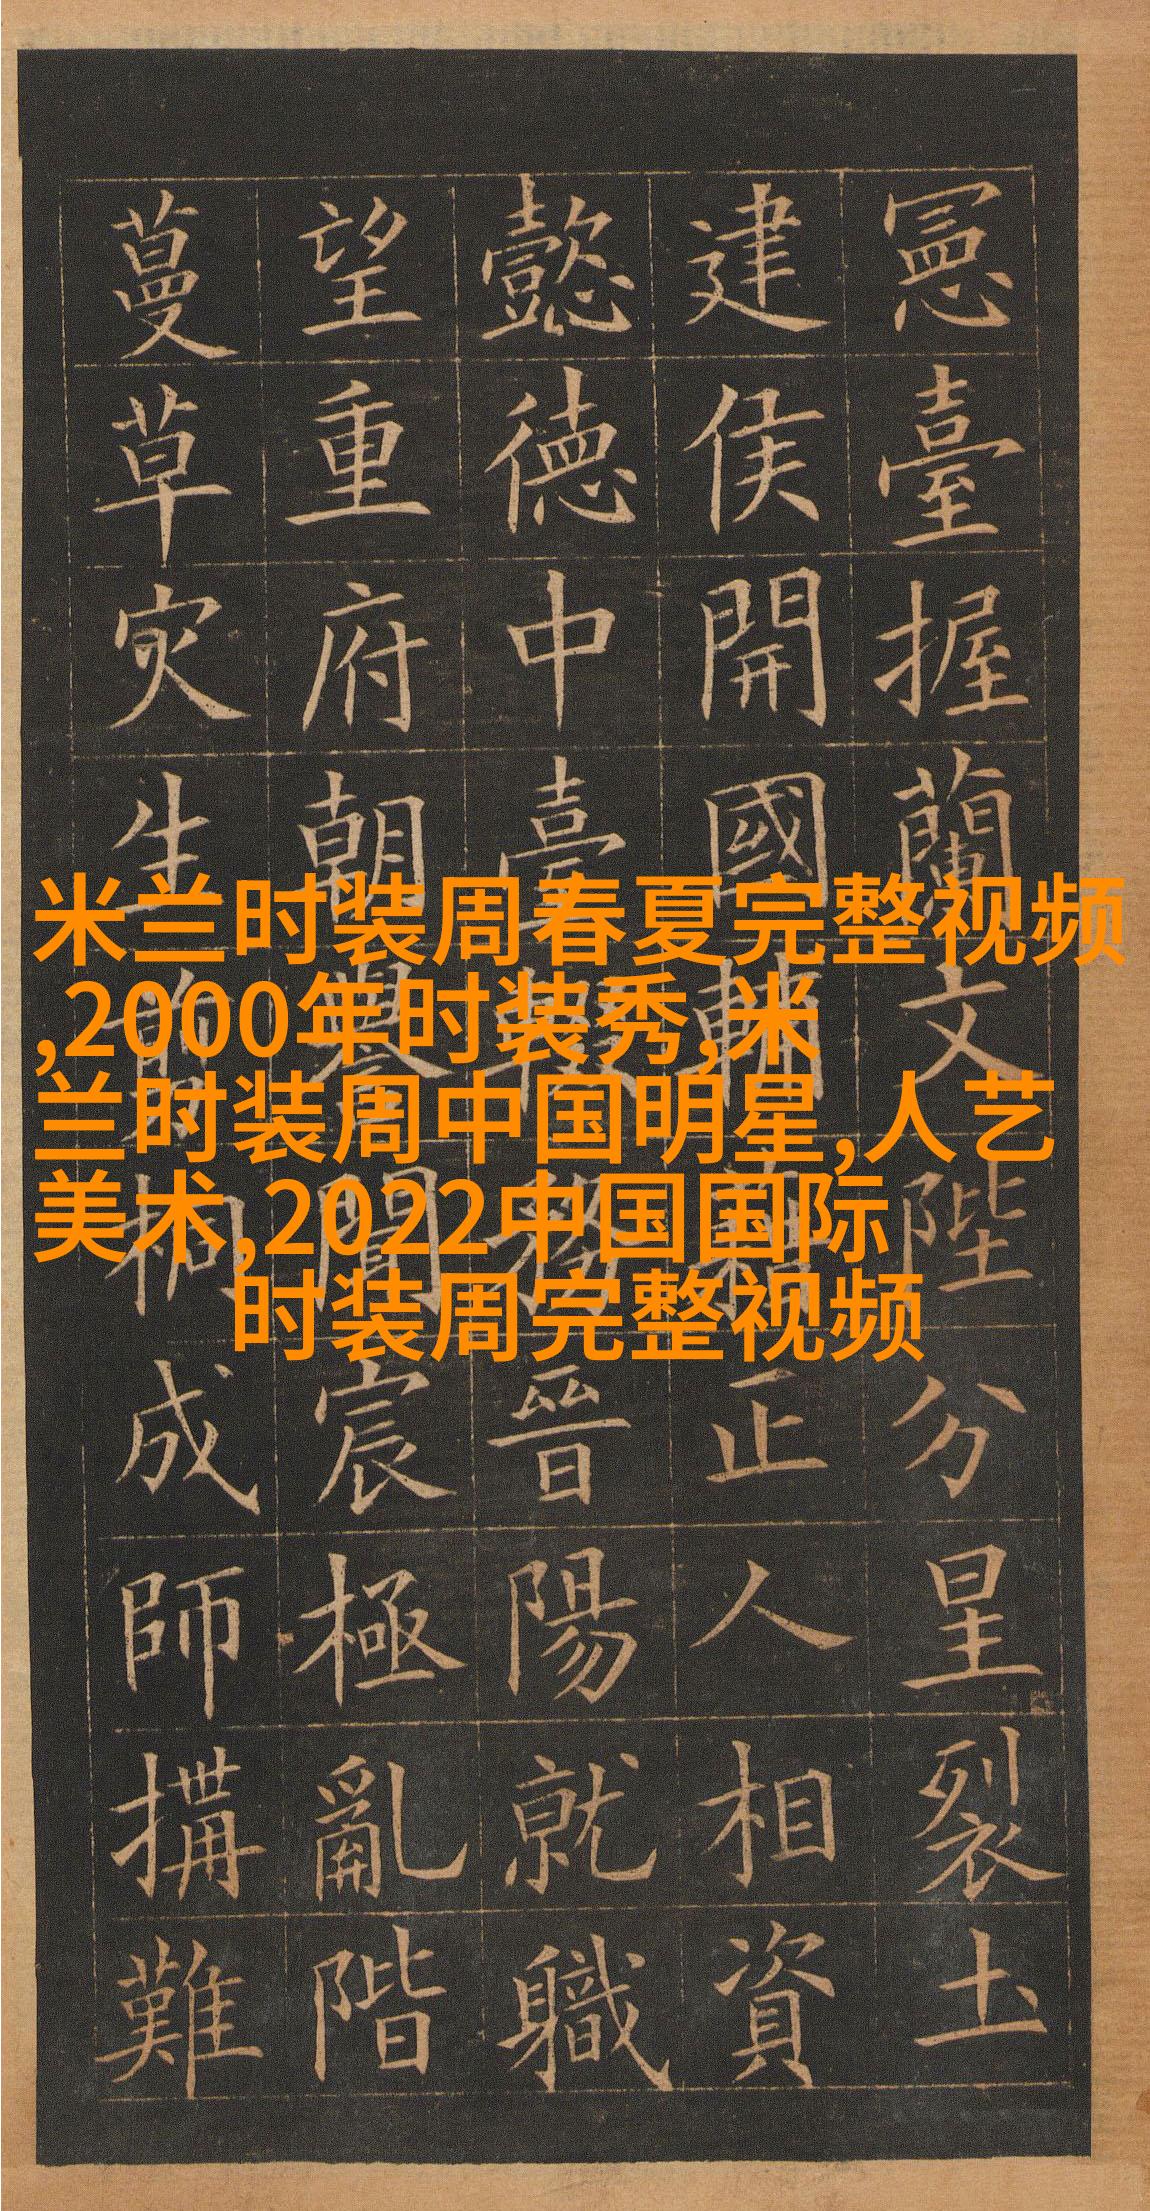 米兰时装周春夏完整视频
,2000年时装秀,米
兰时装周中国明星,人艺
美术,2022中国国际
时装周完整视频
憲臺握蘭文陛分星裂土
建侯開國輔正人相資
懿德中臺晉陽就職
望重府朝譽聞宸極亂階
蔓草灾生桐成師搆難